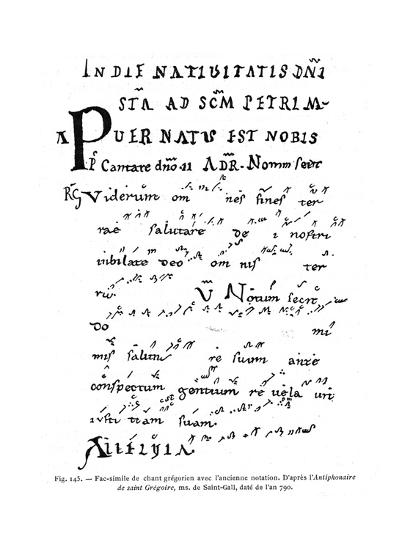 IN DIE NATIUITATIS DÑI
STA AD SCM PETRUM
A PUER NATUS EST NOBIS
P Cantate dño 11 ADR. Notum fecit
RG Viderunt om nes fines ter
rae salutare de i nostri
iubilate deo om nis ter
ra V Notum fecit
Do mi
nus salut re suum ante
conspectum gentium re uela uit
iusti tiam suam
Alleluia.
Fig. 145. — Fac-simile de chant grégorien avec l'ancienne notation. D'après l'Antiphonaire
de saint Grégoire, ms. de Saint-Gall, daté de l'an 790.